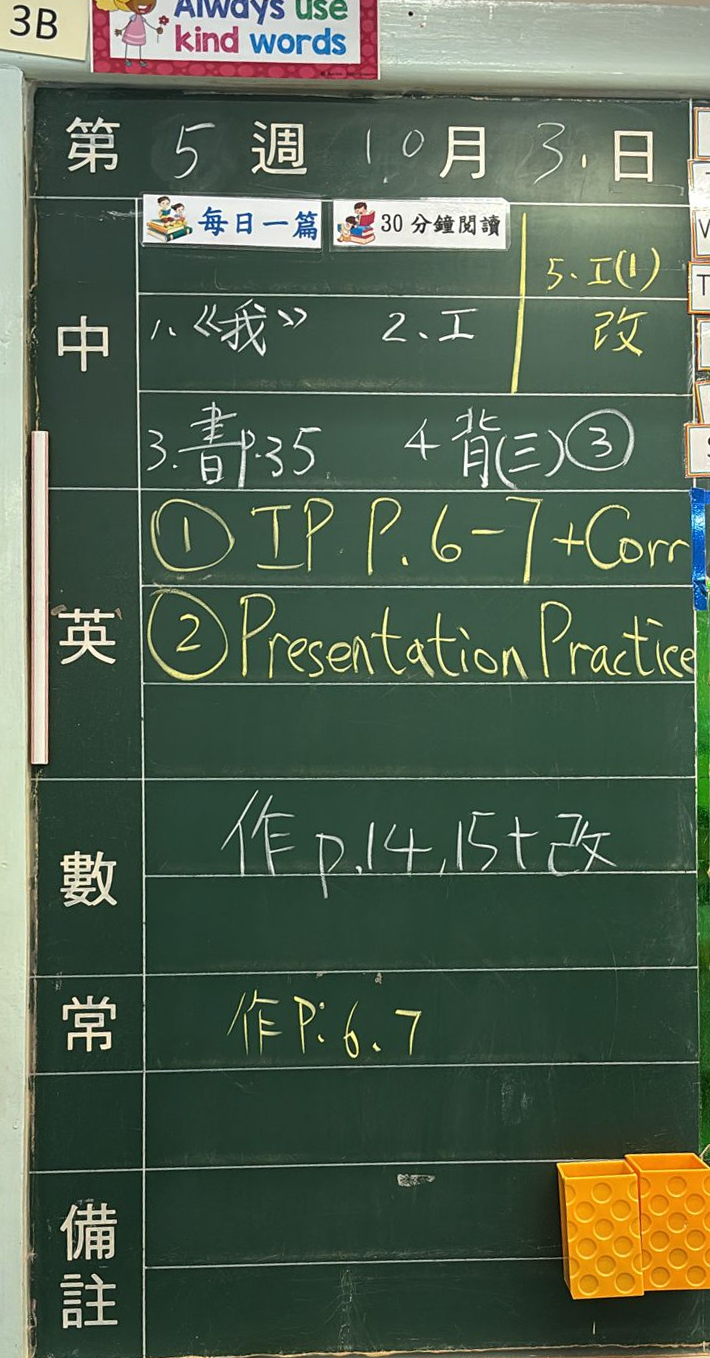 3B
Always use
kind words
第 5 週 10月 3.日
每日一篇 30分鐘閱讀
5.工(1)
中 1、《我》 2、工 改
3.書p.35 4背(三)③
① IP P.6-7+Corr
英 ② Presentation Practice
數 作 p.14,15+改
常 作 P:6、7
備
註